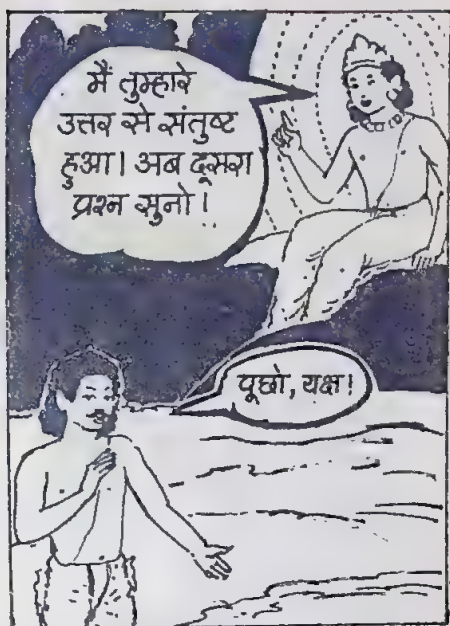 मैं तुम्हारे
उत्तर से संतुष्ट
हुआ। अब दूसरा
प्रश्न सुनो!
पूछो, यक्ष!